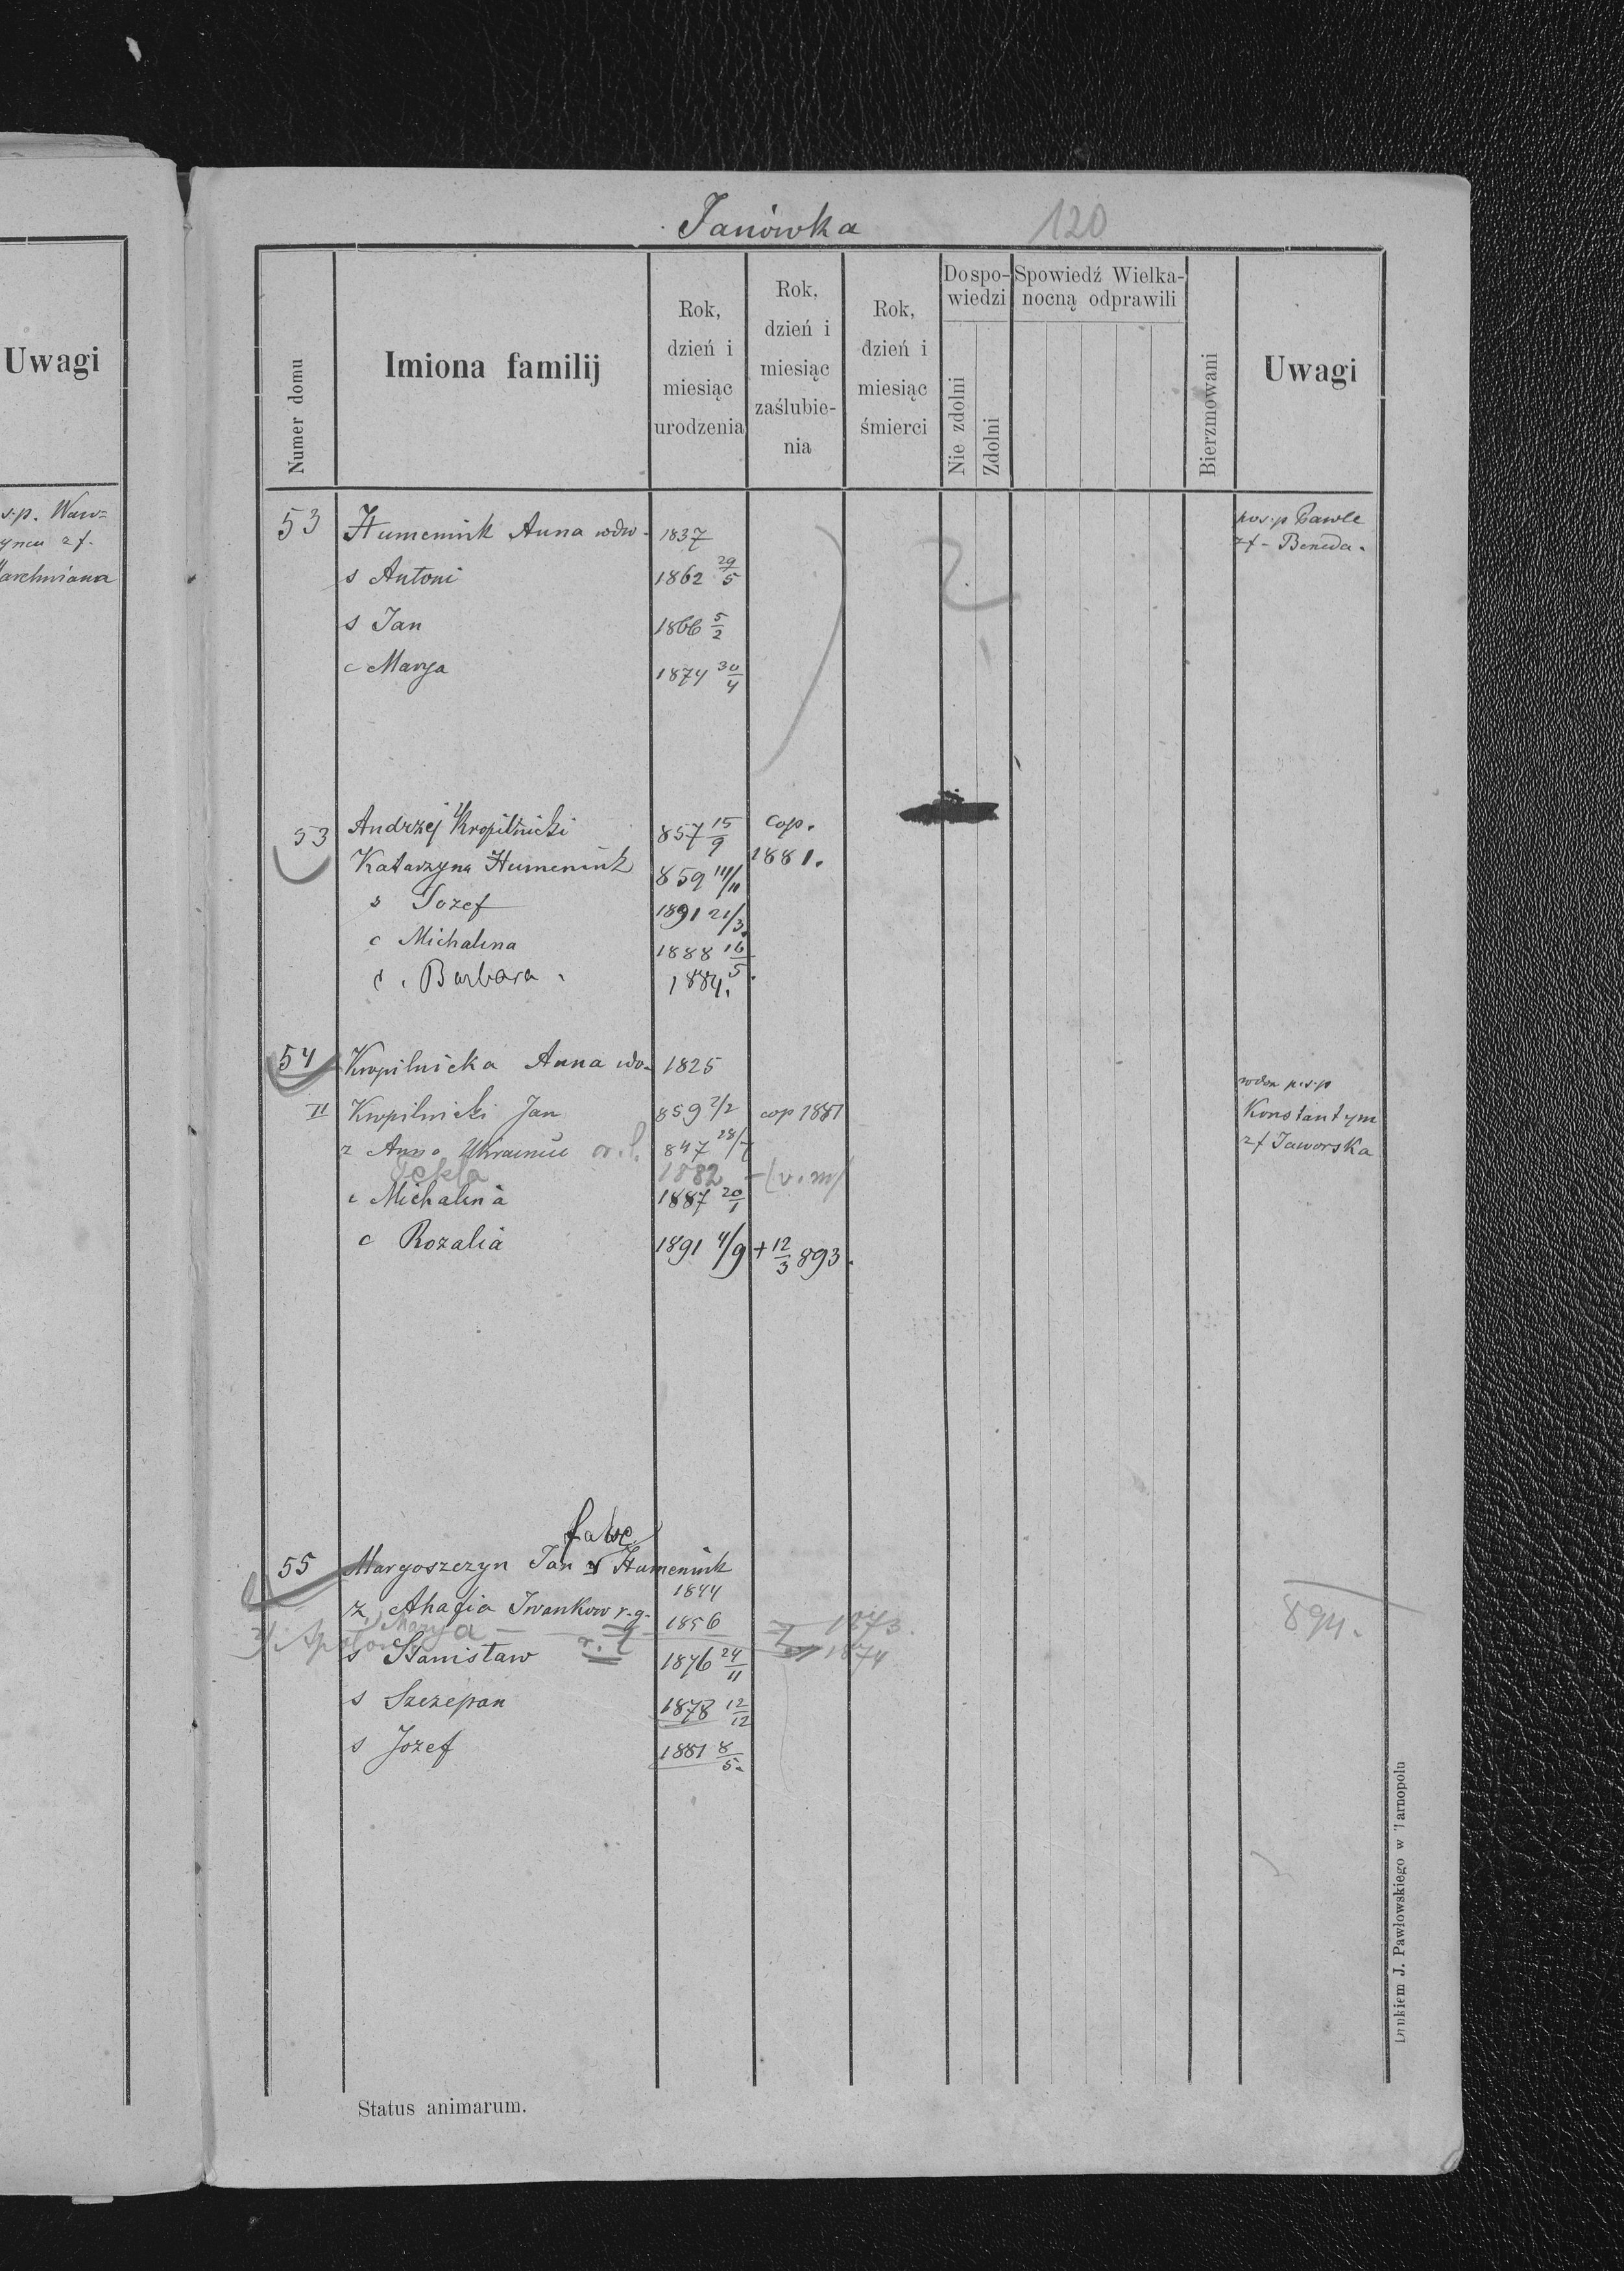 Uwagi
s.p. Waw=
yncu zf.
Janówka
120
Numer domu
Imiona familij
Rok,
dzień i
miesiąc
urodzenia
Rok,
dzień i
miesiąc
zaślubie-
nia
Rok,
dzień i
miesiąc
śmierci
Do spo-
wiedzi
Nie zdolni
Zdolni
Spowiedź Wielka-
nocną odprawili
Bierzmowani
Uwagi
53 Humeniuk Anna wdw. 1837 po s.p Pawle
zf - Beneda.
s Antoni 1862 29/5
s Jan 1866 5/2
c Marya 1874 30/4
53 Andrzej Kropilnicki 857 15/9 cop.
Katarzyna Humeniuk 859 11/11 1881.
s Jozef 1891 21/3
c Michalina 1888 16/5
c. Barbara 1884.
54 Kropilnicka Anna wdo. 1825 wdow p.s.p
II Kropilnicki Jan 859 2/2 cop 1881 Konstantym
ż Anna 847 28/7 zf Jaworska
Tekla 1882 - (v. m)
c Michalina 1887 20/1
c Rozalia 1891 4/9 + 12/3 893.
false
55 Margoszczyn Jan v Humeniuk
1844
ż Ahafia Iwankow r.g. 1856 1873. 894.
Marya
s Stanisław 1876 24/11 1874
s Szczepan 1878 12/12
s Jozef 1881 8/5
Status animarum.
Drukiem J. Pawłowskiego w Tarnopolu